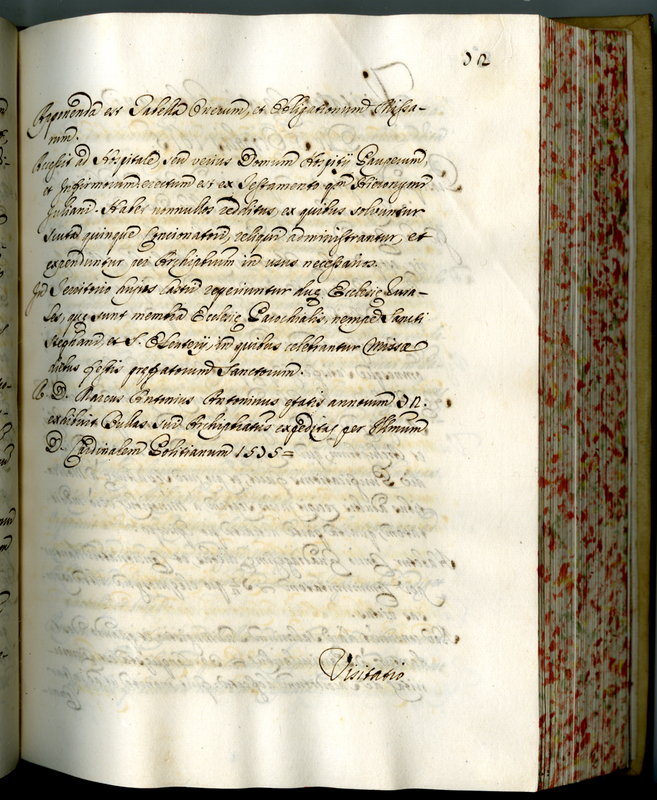 32
Reponenda est Tabella Onerum, et Obligationum Missa-
rum.
Accessit ad Hospitale seu verius Domum Hospitij Pauperum,
et Infirmorum erectum est ex Testamento qm Hieronymi
Juliani. Habet nonnullos redditus, ex quibus solvuntur
scuta quinque Concionatori, reliqui administrantur, et
expenduntur per Archiptrum in usus necessarios.
In Territorio huius Castri reperiuntur duę Ecclesię Rura-
les, que sunt membra Ecclesię Parochialis, nempe Sancti
Stephani, et S. Eleuterij, in quibus celebrantur Missæ
diebus festis prefatorum Sanctorum.
R. D. Marcus Antonius Antoninus ętatis annorum 32.
exhibuit Bullas sui Archiptratus expeditas per Illmum
D. Cardinalem Politianum 1535=
Visitatio